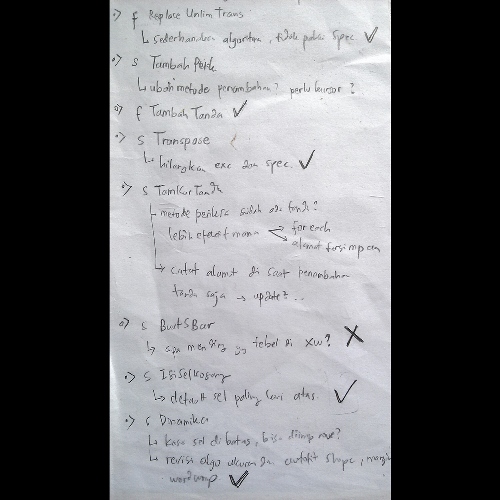 f Replace Unlim Trans
sederhanakan algoritma, tidak pakai spec.
s Tambah Petik
ubah metode penambahan? perlu kursor?
f Tambah Tanda
s Transpose
hilangkan exc dan spec.
s TamKurTanda
metode periksa sudah ada tanda?
lebih efektif mana for each
alamat tersimpan
catat alamat di saat penambahan
tanda saja → update? ...
s BuatSBar
apa mending yg tebel di xw?
s IsiSelKosong
default sel paling kiri atas.
s Dinamika
kasus sel di batas, bisa dimp move?
revisi algo ukuran dr autofit shape, margin
wordwrap